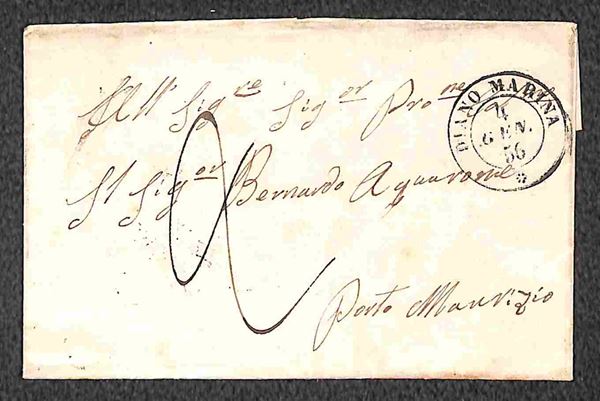 All' Sig.re Sig.or Pro.ne
Il Sig.or Bernardo Aquarone
Porto Maurizio
DIANO MARINA
4
GEN.
56
2